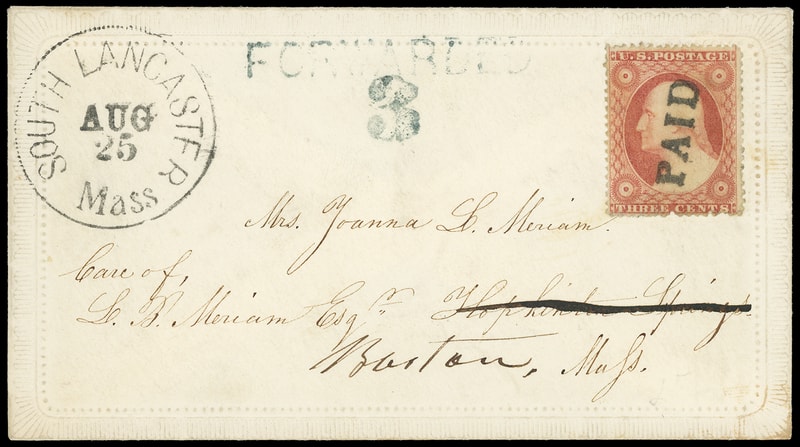 SOUTH LANCASTER
AUG
25
Mass
FORWARDED
3
U.S. POSTAGE
PAID
THREE CENTS
Mrs. Joanna L. Meriam.
Care of,
L. B. Meriam Esqr Hopkinton Springs.
Boston, Mass.